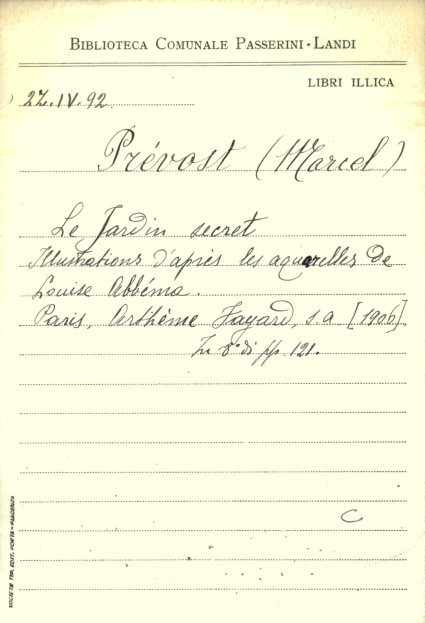 BIBLIOTECA COMUNALE PASSERINI - LANDI
LIBRI ILLICA
2Z.IV.92
Prévost (Marcel)
Le Jardin secret
Illustrations d'après les aquarelles de
Louise Abbéma.
Paris, Arthème Fayard, s.a [1906]
In 8° di pp. 121.
C
SOCIETÀ TIP. EDIT. PORTA - PIACENZA